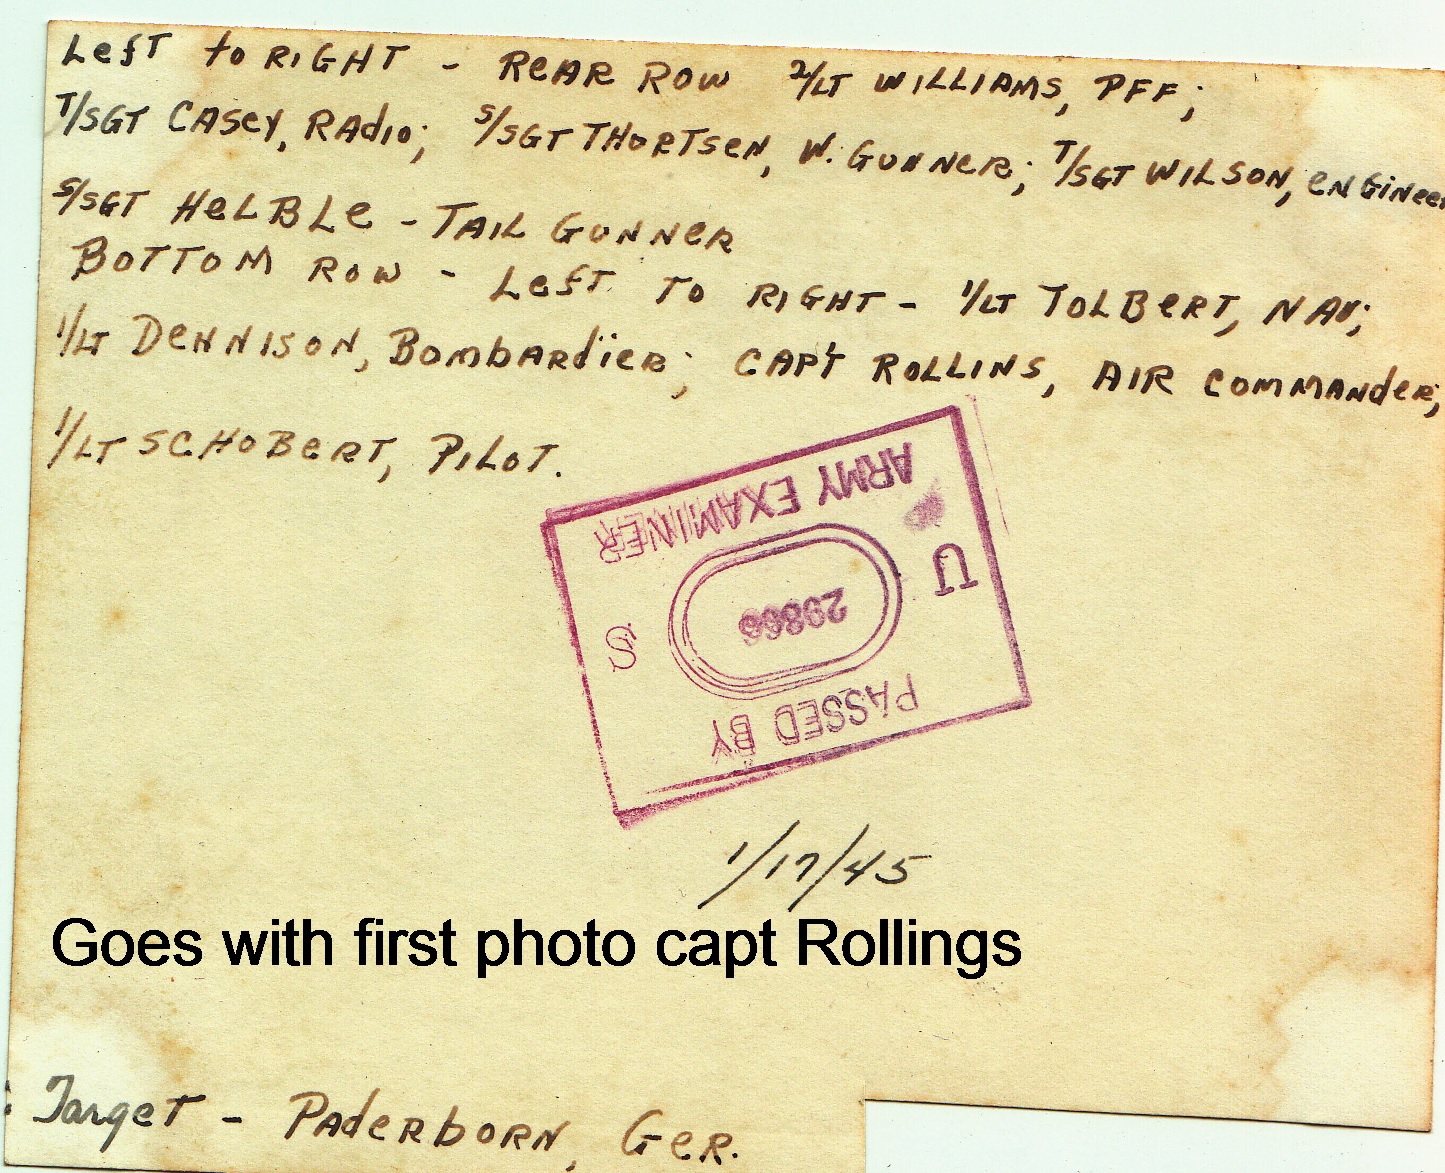 Left to RIGHT - REAR ROW 2/LT WILLIAMS, PFF;
T/SGT CASEY, RADIO; S/SGT THORTSEN, W. GUNNER; T/SGT WILSON, ENGINEER
S/SGT HELBLE - TAIL GUNNER
BOTTOM ROW - Left TO RIGHT - 1/LT TOLBERT, NAV;
1/LT DENNISON, BombARdiER; CAPT ROLLINS, AIR COMMANDER;
1/LT SCHOBERT, PILOT.
PASSED BY
U S
ARMY EXAMINER
1/17/45
Goes with first photo capt Rollings
Target - PADERBORN, GER.